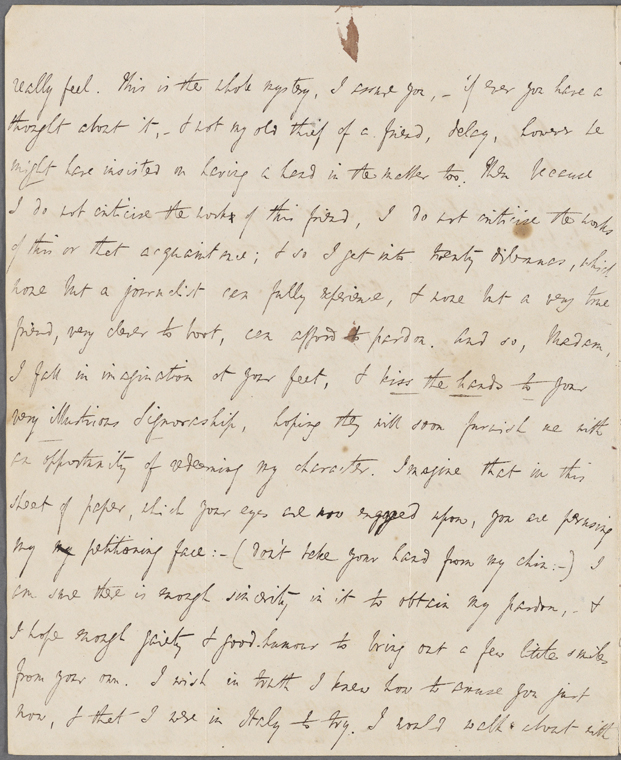 really feel. This is the whole mystery, I assure you, – if ever you have a
thought about it, – & not my old thief of a friend, delay, however he
might have insisted on having a hand in the matter too. Then because
I do not criticise the works of this friend, I do not criticise the works
of this or that acquaintance; & so I get into twenty dilemmas, which
none but a journalist can fully experience, & none but a very true
friend, very clever to boot, can afford to pardon. And so, Madam,
I fall in imagination at your feet, & kiss the hands to your
very illustrious Signoraship, hoping they will soon furnish me with
an opportunity of redeeming my character. Imagine that in this
sheet of paper, which your eyes are now engaged upon, you are perusing
my petitioning face: – (Don't take your hand from my chin: –) I
am sure there is enough sincerity in it to obtain my pardon, – &
I hope enough gaiety & good-humour to bring out a few little smiles
from your own. I wish in truth I knew how to amuse you just
now, & that I were in Italy to try. I would walk about with